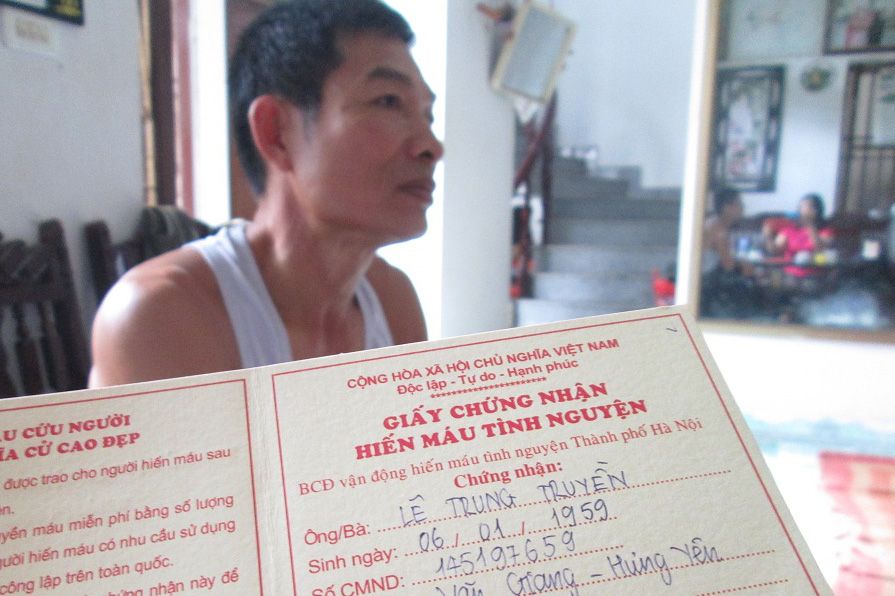 U CỨU NGƯỜI
ĨA CỬ CAO ĐẸP
được trao cho người hiến máu sau
ện.
uyền máu miễn phí bằng số lượng
gười hiến máu có nhu cầu sử dụng
công lập trên toàn quốc.
chứng nhận này để
CỘNG HÒA XÃ HỘI CHỦ NGHĨA VIỆT NAM
Độc lập - Tự do - Hạnh phúc
GIẤY CHỨNG NHẬN
HIẾN MÁU TÌNH NGUYỆN
BCĐ vận động hiến máu tình nguyện Thành phố Hà Nội
Chứng nhận:
Ông/Bà: LÊ TRUNG TRUYỀN
Sinh ngày: 06 / 01 / 1959
Số CMND: 145197659
Văn Giang - Hưng Yên